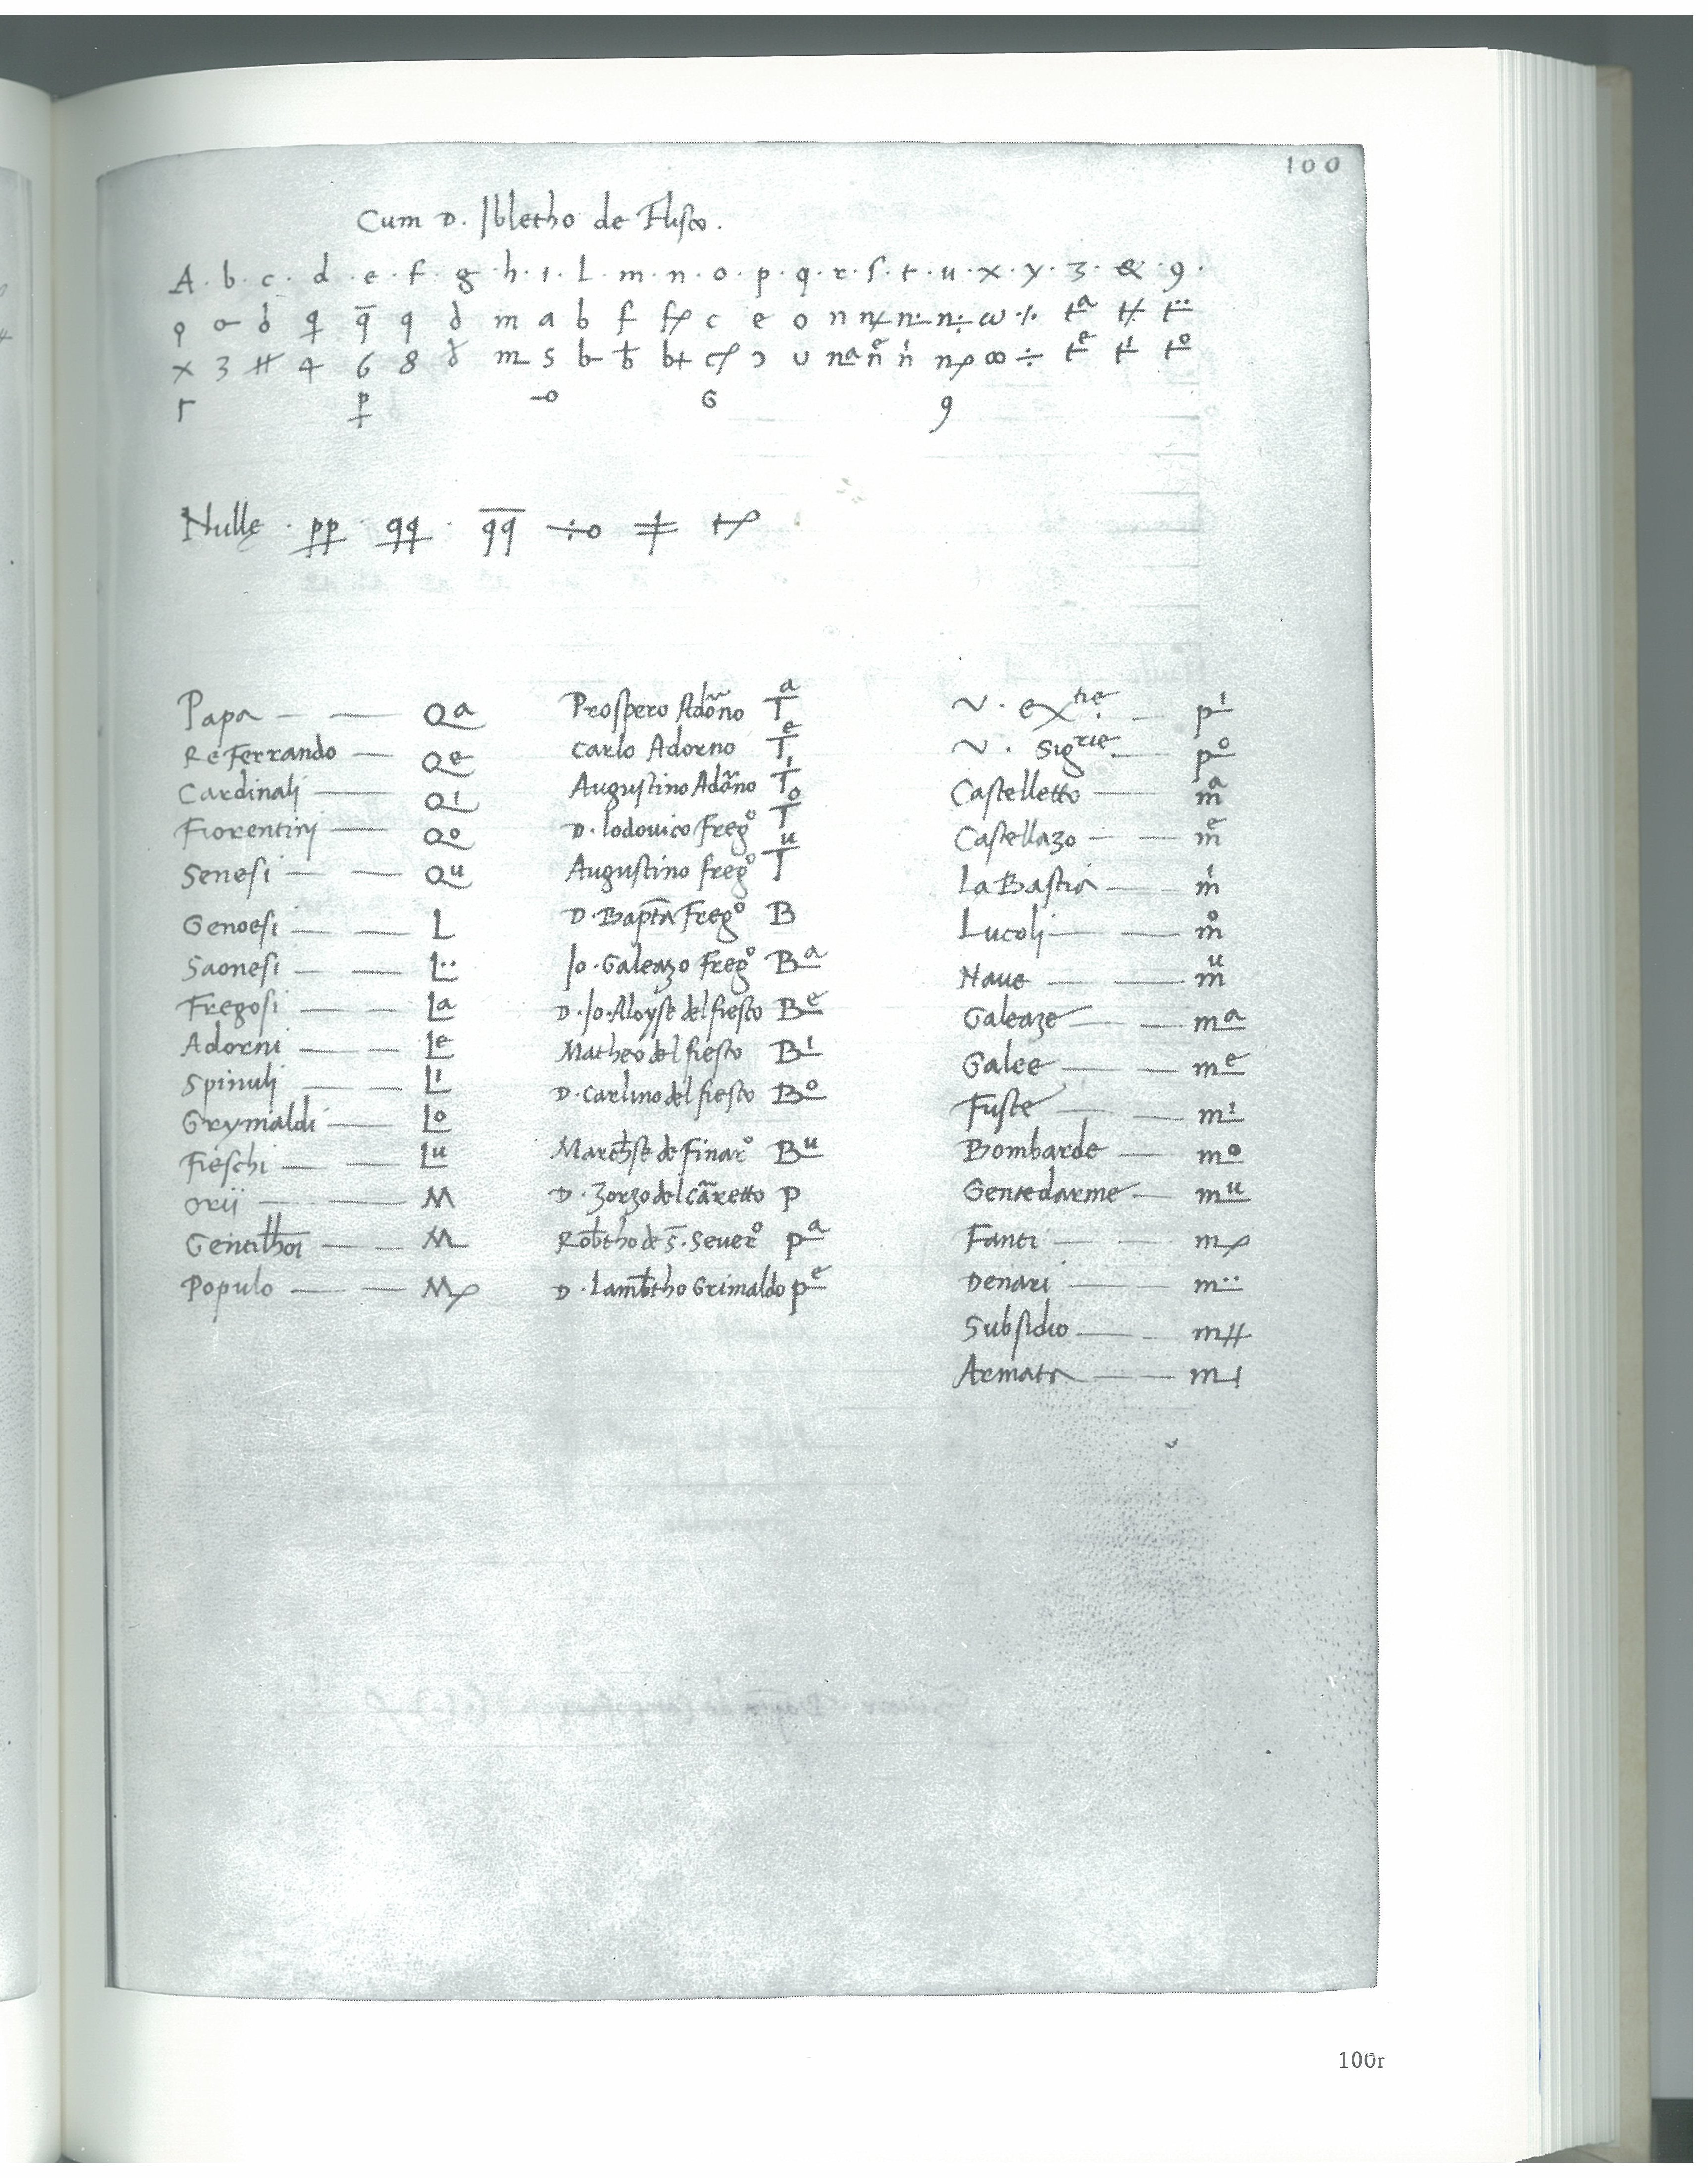 100
Cum D. Ibletho de Flisco.
A · b · c · d · e · f · g · h · i · l · m · n · o · p · q · r · ſ · t · u · x · y · 3 · & · 9 ·
m a b f c e o n ω
x 3 4 6 8 m s b ɔ ∪ ∞ ÷
G 9
Nulle · pp · qq · q̄q̄ ÷o ≠
Papa — — Qa
Re Ferrando — Qe
Cardinalj — Qi
Fiorentinj — Qo
Senesi — — Qu
Genoesi — — L
Saonesi — — L··
Fregosi — — La
Adorni — — Le
Spinulj — — Li
Grymaldi — Lo
Fieschi — — Lu
Orij — — M
Gentilhoı̄ — — M
Populo — — M
Prospero Adoꝛ̃no Tᵃ
Carlo Adorno Tᵉ
Augustino Adõno Tⁱ
D. lodouico Fregº Tº
Augustino fregº Tᵘ
D. Bapt̄a Fregº B
Jo. Galeazo Fregº Bᵃ
D. Jo. Aloyse del fiesco Bᵉ
Matheo del fiesco Bⁱ
D. Carlino del fiesco Bº
Marchese de Finarº Bᵘ
D. Zorzo del Cãretto p
Rob̄tho de S̄. Seuerº pᵃ
D. Lamb̄tho Grimaldo pᵉ
V. exᵗⁱᵉ. — pⁱ
V. Sigʳⁱᵉ. — pº
Castelletto — mᵃ
Castellazo — — mᵉ
La Bastia — — mⁱ
Lucolj — — mº
Naue — — mᵘ
Galeaze — — mᵃ
Galee — — mᵉ
Fuste — — mⁱ
Bombarde — mº
Gentedarme — mᵘ
Fanti — — m
Denari — — m··
Subsidio — — m
Armata — — m
100r